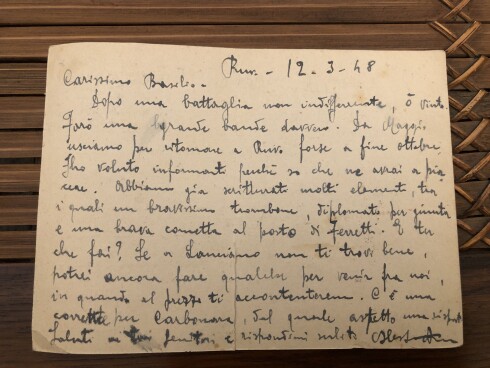 Ruvo - 12-3-48
Carissimo Basilio -
Dopo una battaglia non indifferente, ò vinto
Farò una grande banda davvero. Da Maggio
usciamo per ritornare a Ruvo forse a fine ottobre.
T'ho voluto informarti perchè so che ne avrai a pia
cere. Abbiamo già scritturati molti elementi, tra
i quali un bravissimo trombone, diplomato per giunta
e una brava cornetta al posto di Ferretti. E tu
che fai? Se a Lanciano non ti trovi bene,
potrei ancora fare qualcosa per venir fra noi,
in quando al prezzo ti accontenterem. C'è una
cornetta per Carbonara, dal quale aspetto una risposta
Saluti ai tuoi genitori e rispondimi subito